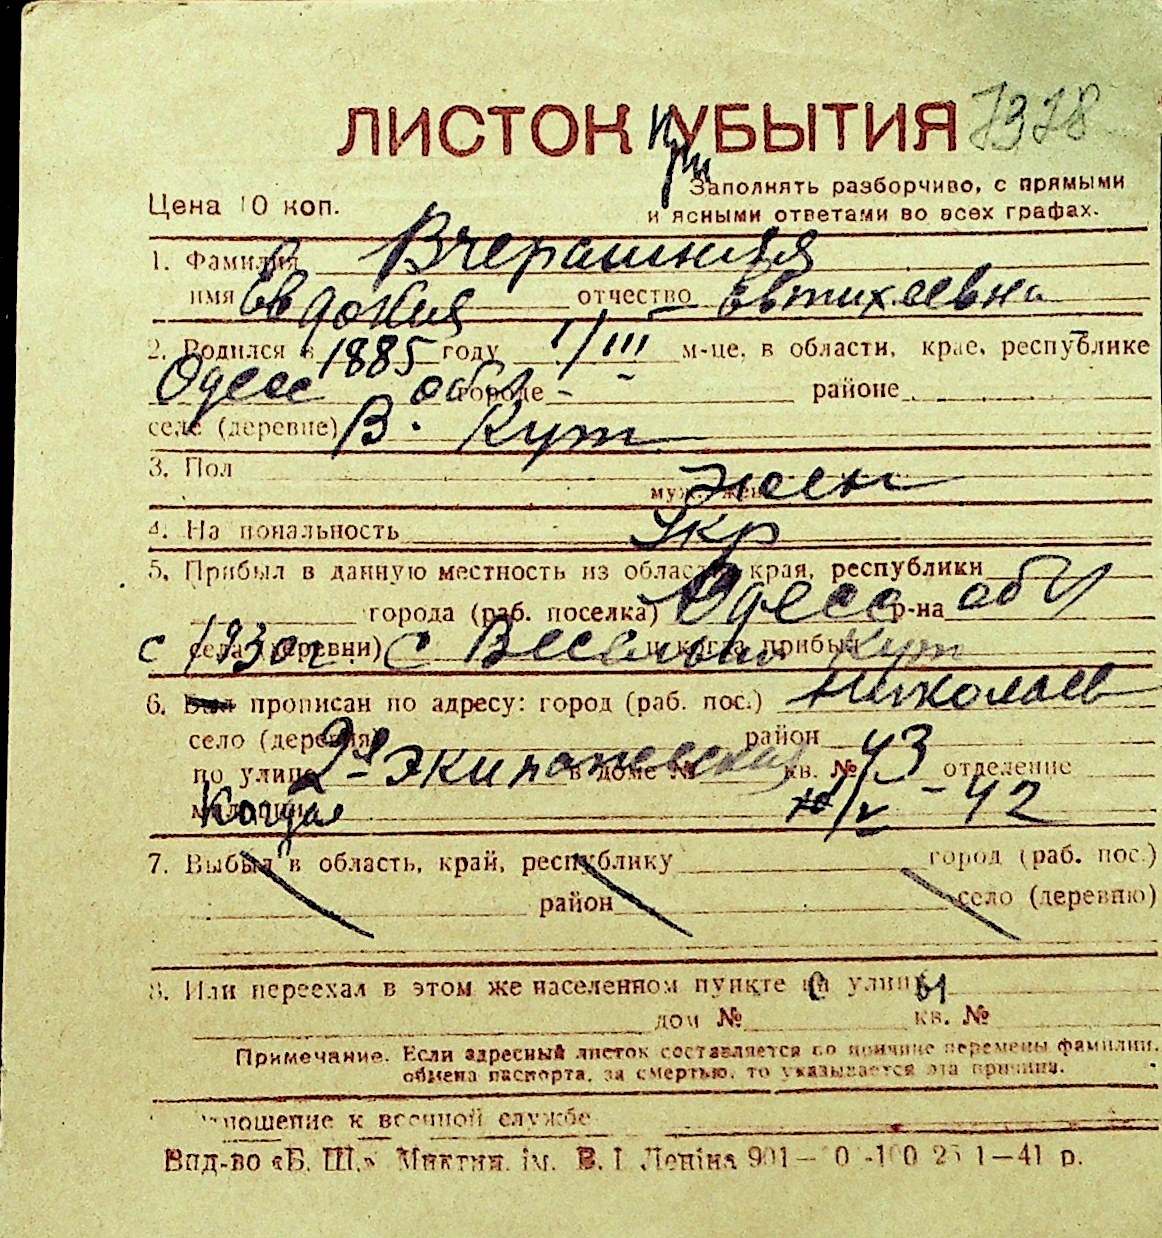 ЛИСТОК УБЫТИЯ 7378
При
Цена 10 коп. Заполнять разборчиво, с прямыми
и ясными ответами во всех графах.
1. Фамилия Вчерашняя
имя Евдокия отчество Евтихеевна
2. Родился в 1885 году 1/III м-це, в области, крае, республике
Одесс обл городе - районе
селе (деревне) В. Кут
3. Пол
муж. жен. жен
4. Национальность Укр
5. Прибыл в данную местность из области, края, республики
города (раб. поселка) Одесс р-на обл
с 1930 г. села (деревни) с Веселый и когда прибыл Кут
6. прописан по адресу: город (раб. пос.) Николаев
село (деревня) район
по улице 2я Экипажеская в доме № кв. № 43 отделение
милиции Когда /V - 42
7. Выбыл в область, край, республику город (раб. пос.)
район село (деревню)
8. Или переехал в этом же населенном пункте с улицы
дом № кв. №
Примечание. Если адресный листок составляется по причине перемены фамилии,
обмена паспорта, за смертью, то указывается эта причина.
Отношение к военной службе
Вид-во «Б. Ш.» Миктип. ім. В. І. Леніна 1—41 р.